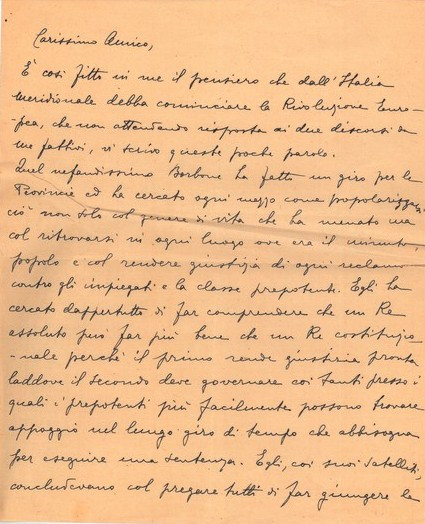 Carissimo Amico,
È così fitto in me il pensiero che dall'Italia
Meridionale debba cominciare la Rivoluzione Euro-
-pea, che non attendendo risposta ai due discorsi da
me fattivi, vi scrivo queste poche parole.
Quel nefandissimo Borbone ha fatto un giro per le
Provincie ed ha cercato ogni mezzo come popolarizzarsi
ciò non solo col genere di vita che ha menato ma
col ritrovarsi in ogni luogo ove era il minuto
popolo e col rendere giustizia di ogni reclamo
contro gli impiegati e la classe prepotenti. Egli ha
cercato dappertutto di far comprendere che un Re
assoluto può far più bene che un Re costituzio
-nale perchè il primo rende giustizia pronta
laddove il secondo deve governare coi tanti presso i
quali i prepotenti più facilmente possono trovare
appoggio nel lungo giro di tempo che abbisogna
per eseguire una sentenza. Egli, coi suoi satelliti,
concludevano col pregare tutti di far giungere le